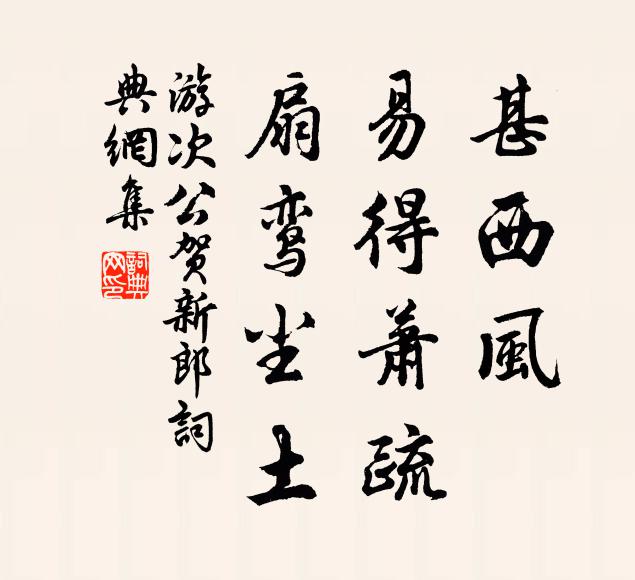 甚西風
易得蕭疏
扇鸾尘土
游次公贺新郎詞
典網集
詞典网印